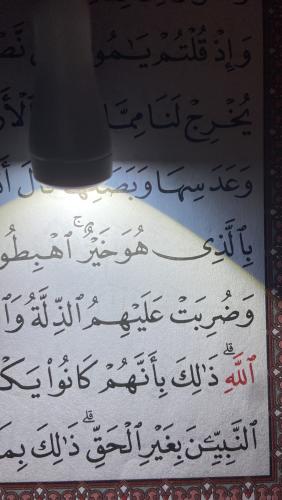 وَإِذْ قُلْتُمْ يَـٰمُو
يُخْرِجْ لَنَا مِمَّا ٱلْأَ
وَعَدَسِهَا وَبَصَلِهَا قَالَ أَ
بِٱلَّذِى هُوَ خَيْرٌ ۚ ٱهْبِطُو
وَضُرِبَتْ عَلَيْهِمُ ٱلذِّلَّةُ وَٱ
ٱللَّهِ ۗ ذَٰلِكَ بِأَنَّهُمْ كَانُوا۟ يَكْ
ٱلنَّبِيِّـۧنَ بِغَيْرِ ٱلْحَقِّ ۗ ذَٰلِكَ بِمَ